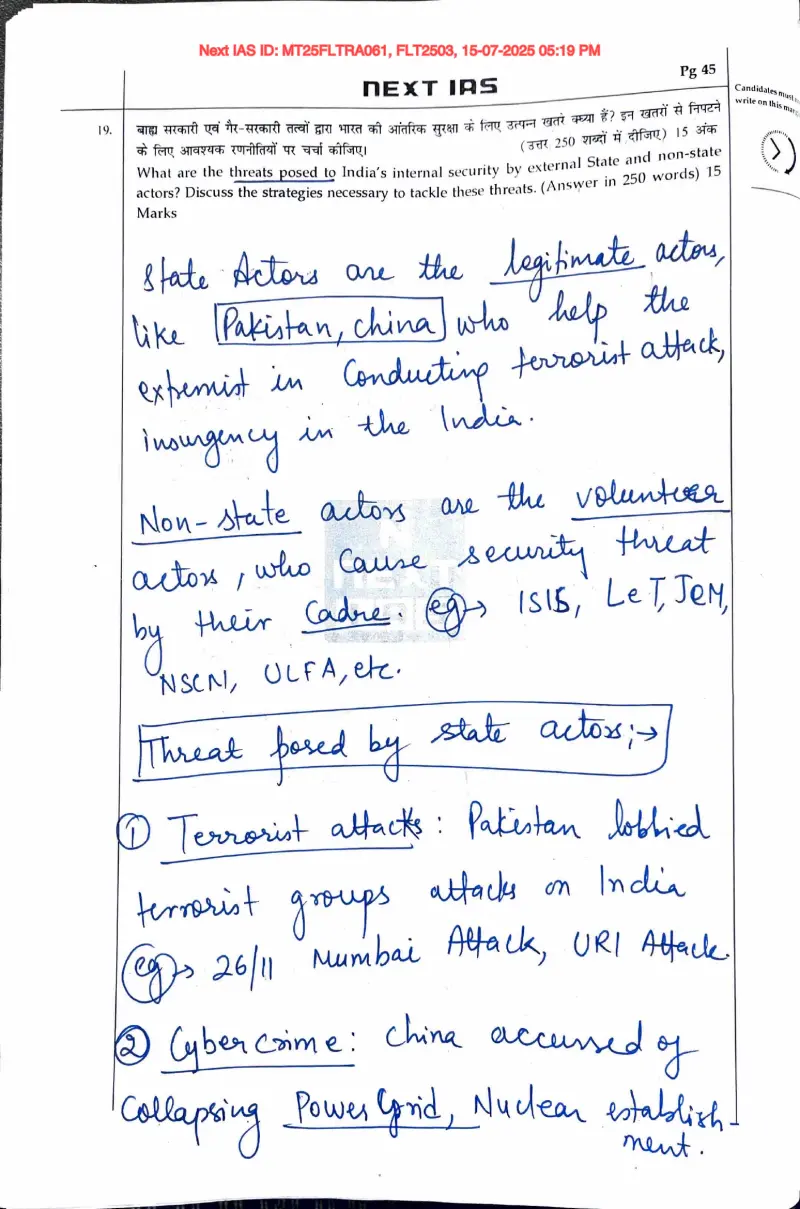 Next IAS ID: MT25FLTRA061, FLT2503, 15-07-2025 05:19 PM
Pg 45
NEXT IAS
Candidates must
write on this mar
19. बाह्य सरकारी एवं गैर-सरकारी तत्वों द्वारा भारत की आंतरिक सुरक्षा के लिए उत्पन्न खतरे क्या हैं? इन खतरों से निपटने
के लिए आवश्यक रणनीतियों पर चर्चा कीजिए। (उत्तर 250 शब्दों में दीजिए) 15 अंक
What are the threats posed to India's internal security by external State and non-state
actors? Discuss the strategies necessary to tackle these threats. (Answer in 250 words) 15
Marks
State Actors are the legitimate actors,
like Pakistan, china who help the
extremist in Conducting terrorist attack,
insurgency in the India.
Non-state actors are the volunteer
actors, who cause security threat
by their Cadre. eg → ISIS, LeT, JeM,
NSCN, ULFA, etc.
Threat posed by state actors; →
① Terrorist attacks: Pakistan lobbied
terrorist groups attacks on India
eg → 26/11 Mumbai Attack, URI Attack.
② Cyber crime: China accursed of
Collapsing Power Grid, Nuclear establish-
ment.